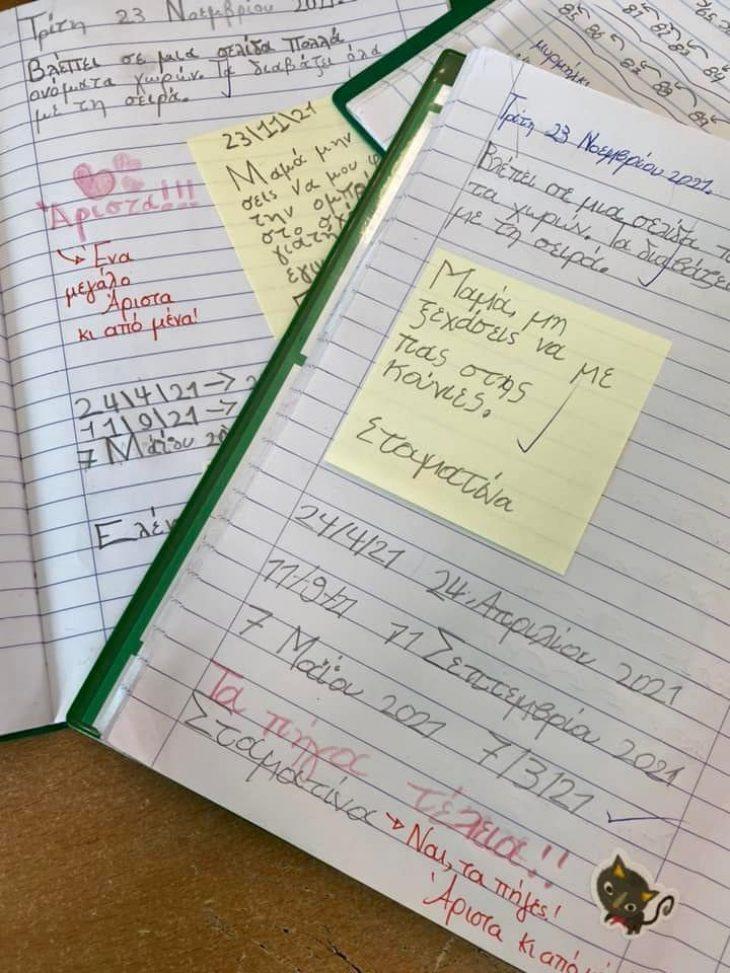 Τρίτη 23 Νοεμβρίου 2021.
Βλέπει σε μια σελίδα πολλά
ονόματα χωρών. Τα διαβάζει όλα
με τη σειρά.
Άριστα!!!
Ένα
μεγάλο
Άριστα
κι από μένα!
24\4\21 →
11\9\21 →
7 Μαΐου
23\11\21
Μαμά μην
σεις να μου
την ομπρ
στο σχ
γιατη
εγιν
85 86 87
μυρμήγκι
Τρίτη 23 Νοεμβρίου 2021.
Βλέπει σε μια σελίδα
τα χωρών. Τα διαβάζει
με τη σειρά.
Μαμά, μη
ξεχάσεις να με
πας στης
κούνιες.
Σταματίνα
24/4/21 24 Απριλίου 2021
11/9/21 11 Σεπτεμβρίου 2021
7 Μαΐου 2021 7/3/21
Τα πήγα τέλεια!!
Σταματίνα
Ναι, τα πήγες!
Άριστα κι από